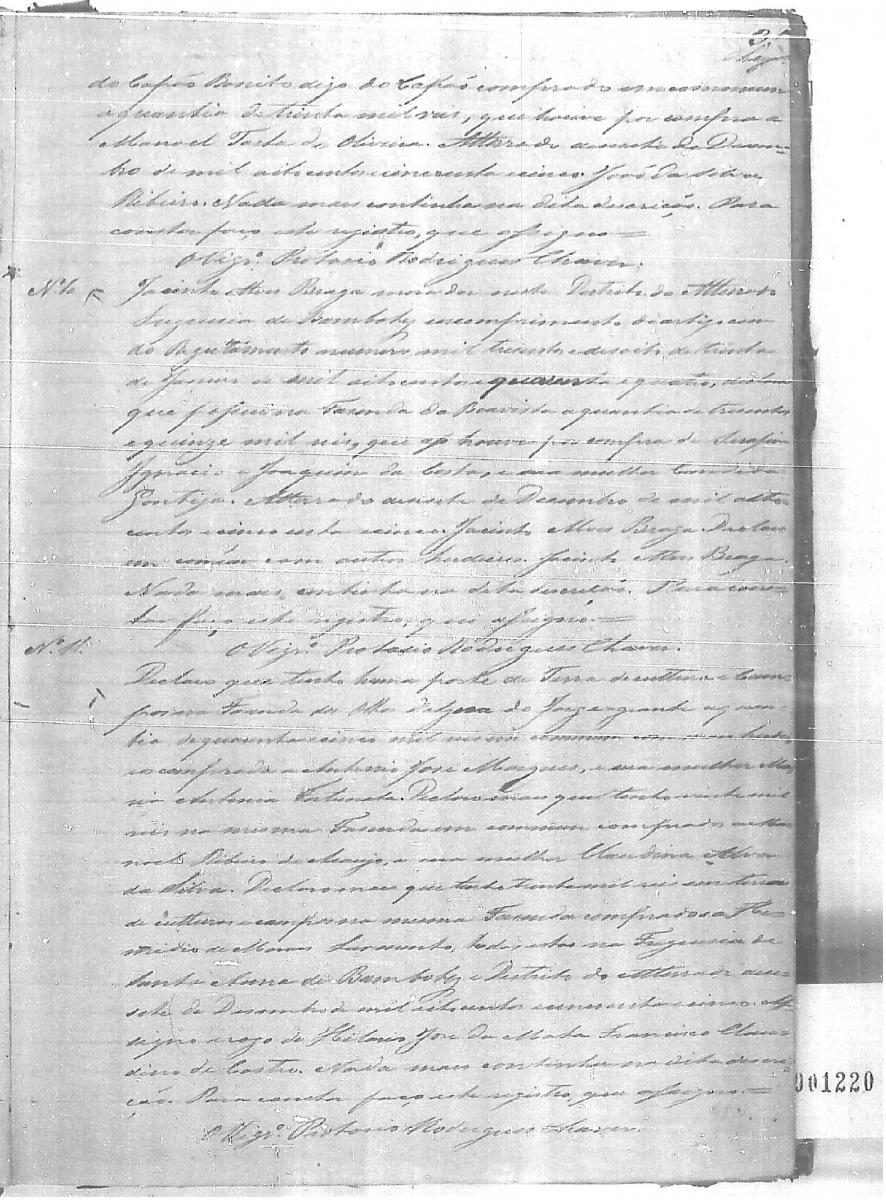 3
do Capão Bonito digo do Capão comprado em commum
a quantia de trinta mil reis, que houve por compra a
Manoel de Oliveira. Atterrado desesete de Desem-
bro de mil oito centos e cincoenta e cinco. José da Silva
Ribeiro. Nada mais continha na dita descrição. Para
constar faço este registro, que assigno=
O Vigrº. Protasio Rodrigues Chaves.
Nº 10
Jacintho Alves Braga morador neste Destrito do Atterrado
Freguesia de Bambohy em comprimento do artigo cen-
do Regulamento numero mil tresentos e desoito de trinta
de Janeiro de mil oito centos e quarenta e quatro, declara
que possue na Fasenda da Boavista a quantia de tresentos
e quinze mil reis, que houve por compra de Serafim
Ignacio e Joaquim da Costa, e sua mulher Candida
Gontija. Atterrado desesete de Desembro de mil oito
centos e cincoenta e cinco. Jacintho Alves Braga Declaro
com outros herdeiros. Jacintho Alves Braga.
Nada mais continha na dita descrição. Para cons-
tar faço este registro, que assigno=
Nº 11.
O Vigrº. Protasio Rodrigues Chaves.
Declaro que tenho huma parte de Terra de cultura e Cam-
pos na Fasenda da do a quan-
tia de quarenta e cinco mil reis em commum com
comprado a Antonio José Marques, e sua mulher Ma-
ria Antonia Declaro mais que tenho vinte mil
reis na mesma Fasenda em commum comprado a Ma-
noel Ribeiro de Araujo, e sua mulher Claudina Alves
da Silva. Declaro mais que tenho trinta mil reis em terras
de culturas e campos na mesma Fasenda comprados a Re-
midio de Moraes Sarmento, todos estes na Freguesia de
Santa Anna de Bambohy e Destrito do Atterrado dese-
sete de Desembro de mil oito centos e cincoenta e cinco. As-
signo a rogo de Hilario José da Mata Francisco Clau-
dino de Castro. Nada mais continha na dita descri-
ção. Para constar faço este registro, que assigno.=
O Vigrº. Protasio Rodrigues Chaves.
001220